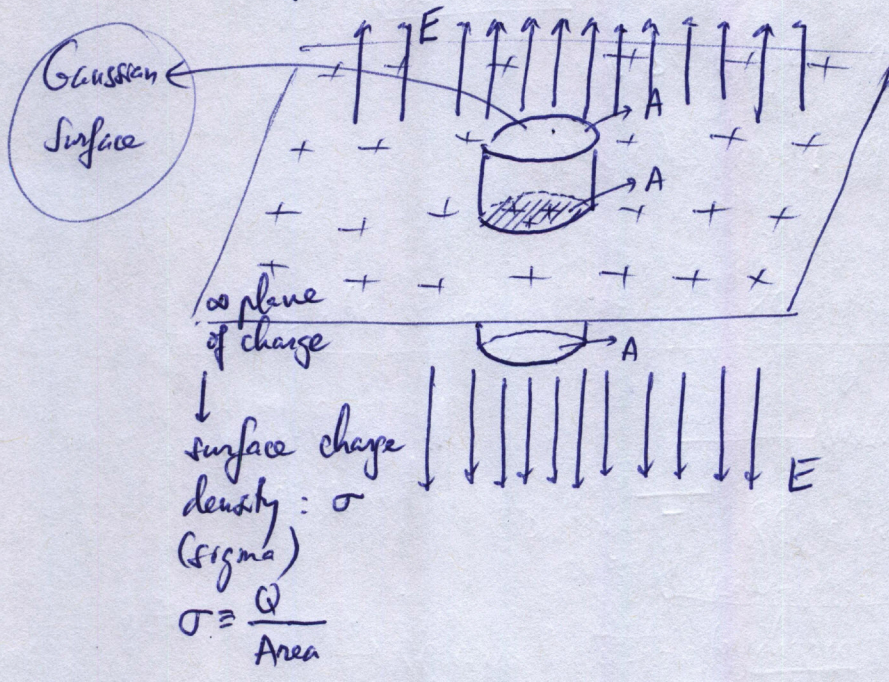 E
Gaussian
Surface
A
A
∞ plane
of charge
A
surface charge
density : σ
(sigma)
E
σ ≡ Q
Area